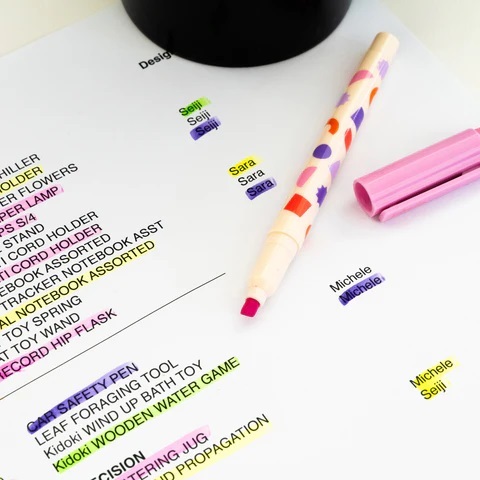 Desig
Seiji
Seiji
Seiji
Sara
Sara
Sara
HILLER
OLDER
ER FLOWERS
PER LAMP
PS S/4
STAND
TI CORD HOLDER
TI CORD HOLDER
EBOOK ASSORTED
TRACKER NOTEBOOK ASST
AL NOTEBOOK ASSORTED
TOY SPRING
AT TOY WAND
RECORD HIP FLASK
Michele
Michele
CAR SAFETY PEN
LEAF FORAGING TOOL
Kidoki WIND UP BATH TOY
Kidoki WOODEN WATER GAME
Michele
Seiji
ECISION
TERING JUG
ND PROPAGATION